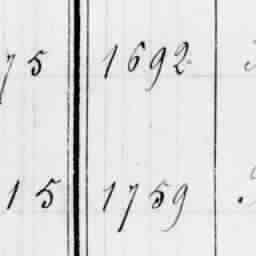 75 1692
15 1759